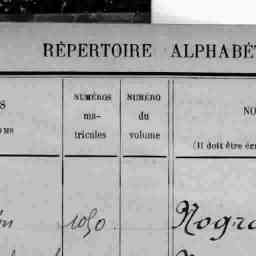 RÉPERTOIRE ALPHABÉ
NUMÉROS
ma-
tricules
NUMÉRO
du
volume
NO
(Il doit être écr
1050
Nogr